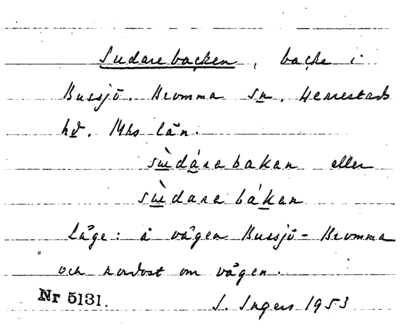 Sudarebacken, backe i
Bussjö, Bromma sn, Herrestads
hd. Mhs län.
sùdárebakan eller
sùdarebákan
Läge: å vägen Bussjö - Bromma
och nordost om vägen.
Nr 5131.
I. Ingers 1953